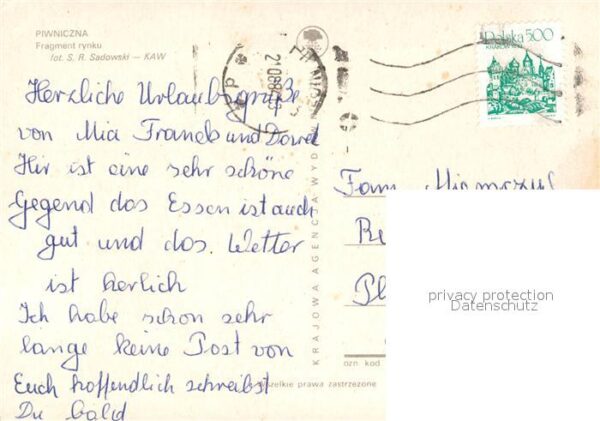 PIWNICZNA
Fragment rynku
fot. S. R. Sadowski — KAW
Polska 500
Herzliche Urlaubsgrüße
von Mia Franck und Dawid
Hir ist eine sehr schöne
Gegend das Essen ist auch
gut und das Wetter
ist herlich
Ich habe schon sehr
lange keine Post von
Euch hoffendlich schreibst
Du bald
Fam.
KRAJOWA AGENCJA WYD
ozn kod
Wszelkie prawa zastrzeżone
privacy protection
Datenschutz